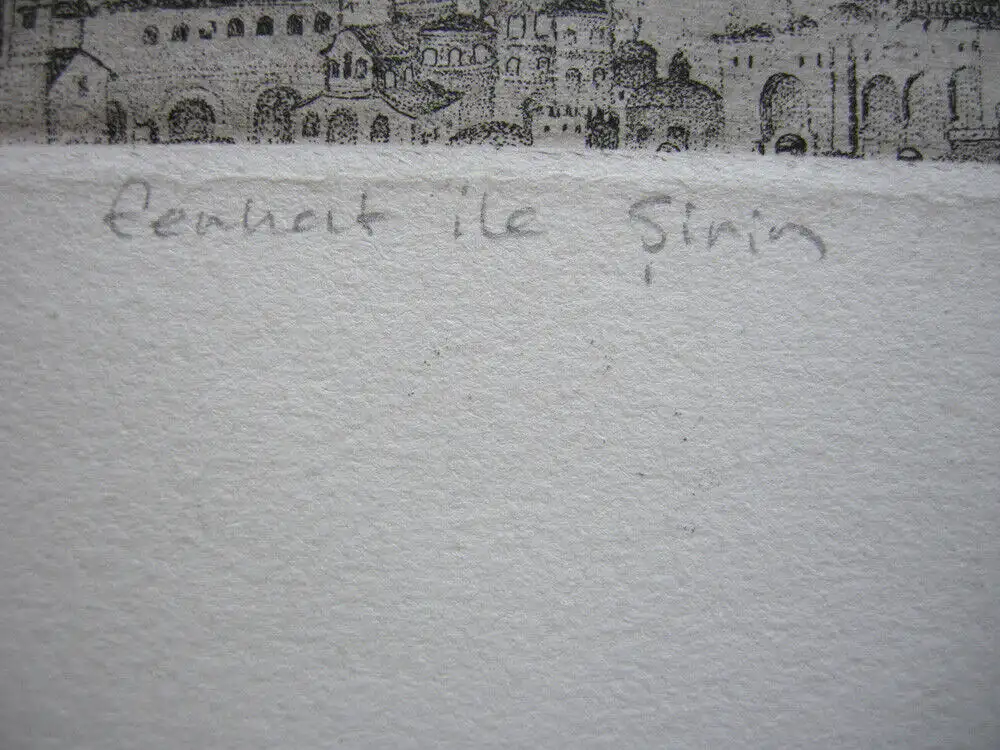 Ferhat ile Şirin